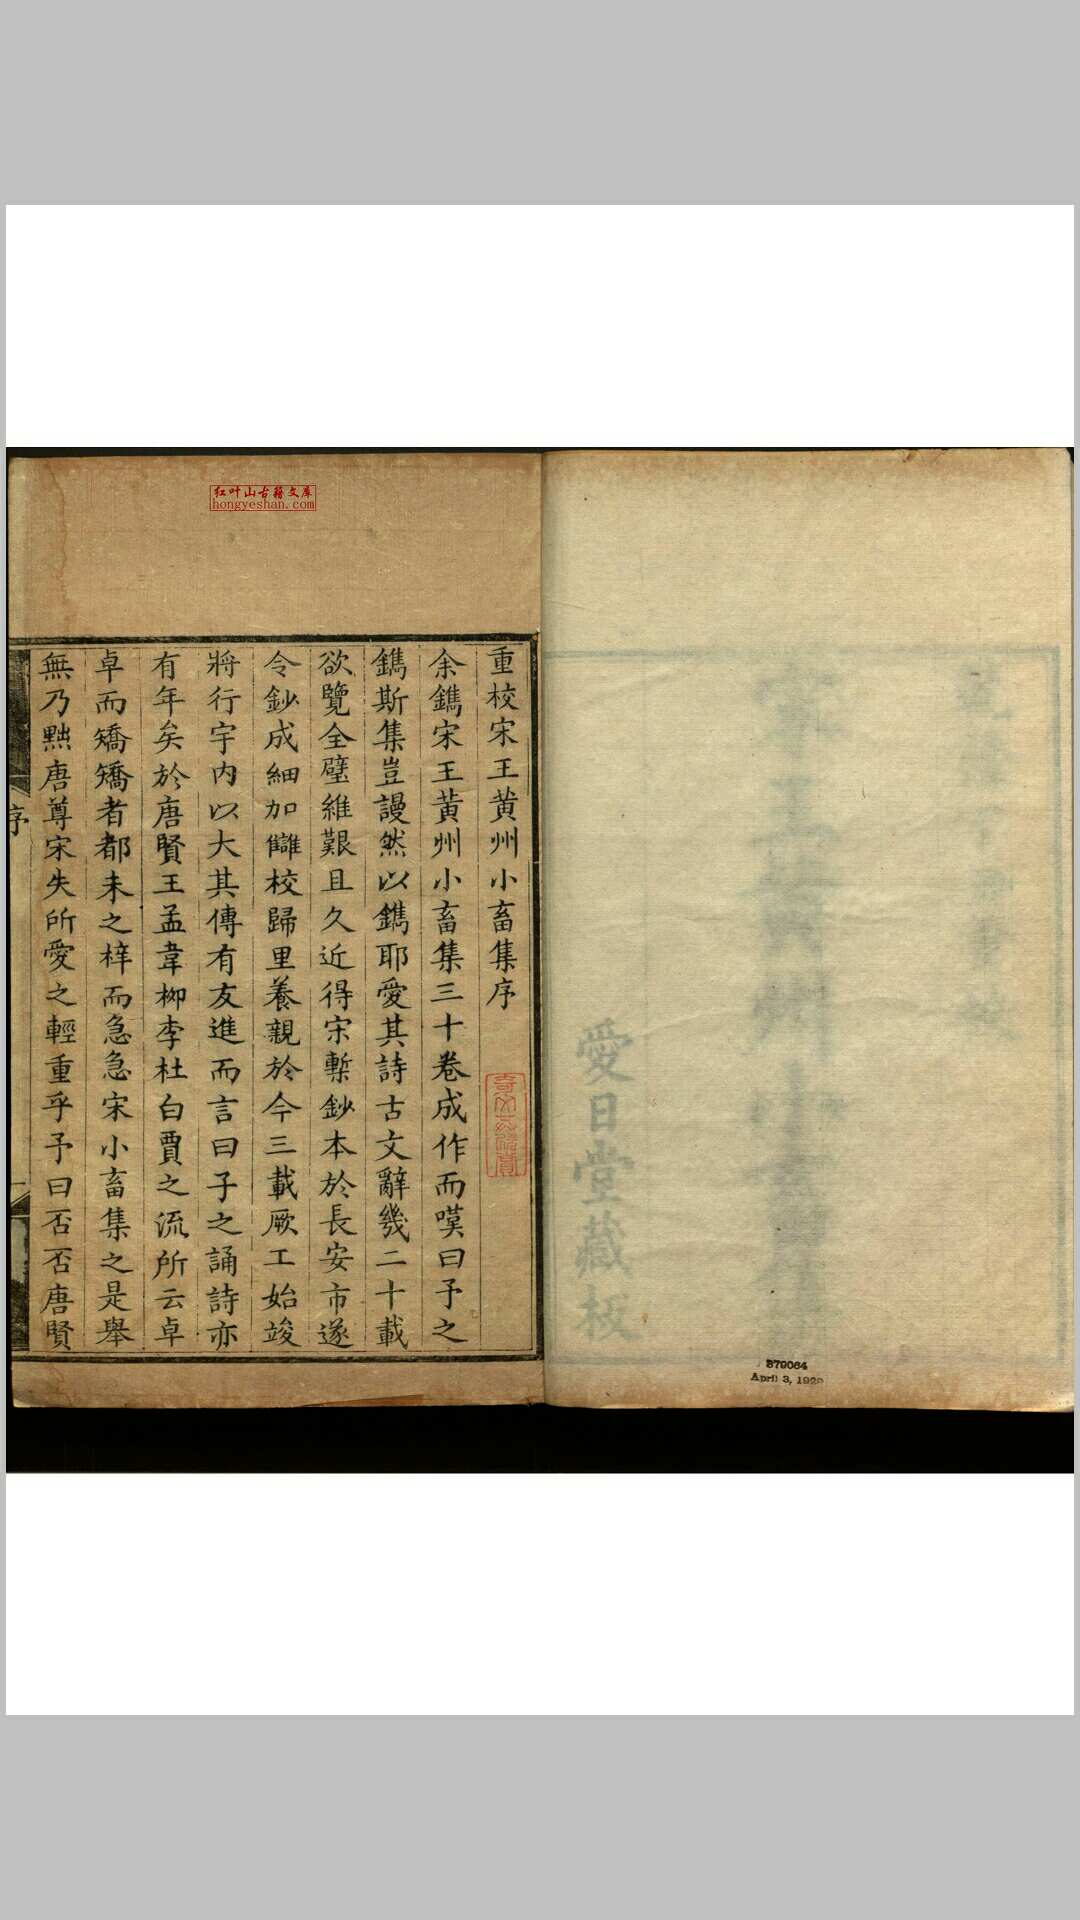 红叶山古籍文库
hongyeshan.com
愛日堂藏板
379064
April 3, 1929
重校宋王黃州小畜集序
余鐫宋王黃州小畜集三十卷成作而嘆曰予之
鐫斯集豈謾然以鐫耶愛其詩古文辭幾二十載
欲覽全璧維艱且久近得宋槧鈔本於長安市遂
令鈔成細加讎校歸里養親於今三載厥工始竣
將行宇內以大其傳有友進而言曰子之誦詩亦
有年矣於唐賢王孟韋栁李杜白賈之流所云卓
卓而矯矯者都未之梓而急急宋小畜集之是舉
無乃黜唐尊宋失所愛之輕重乎予曰否否唐賢
序